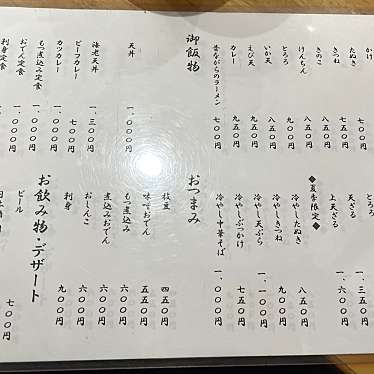 かけ
たぬき
きつね
きのこ
けんちん
とろろ
いか天
えび天 九五〇円
カレー 九五〇円
昔ながらのラーメン 七〇〇円
御飯物
天丼 一、〇〇〇円
海老天丼 一、三〇〇円
ビーフカレー 七〇〇円
カツカレー 一、〇〇〇円
もつ煮込み定食
おでん定食
刺身定食
とろろ
天ざる 一、三五〇円
上天ざる 一、六〇〇円
◆夏季限定◆
冷やしたぬき 八五〇円
冷やしきつね 九〇〇円
冷やし天ぷら 一、一〇〇円
冷やしぶっかけ 七五〇円
冷やし中華そば
おつまみ
枝豆 四五〇円
味噌おでん 五五〇円
もつ煮込み 六〇〇円
煮込みおでん 六〇〇円
おしんこ 六〇〇円
刺身 九〇〇円
お飲み物・デザート
ビール 七〇〇円